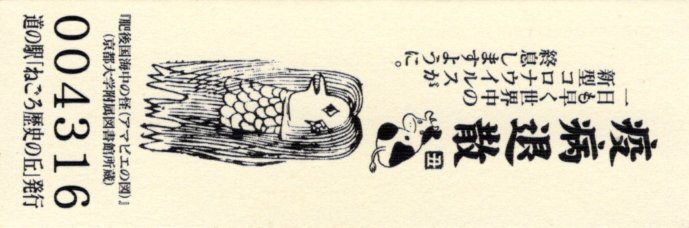 疫病退散
一日も早く世界中の
新型コロナウイルスが
終息しますように。
丑
『肥後国海中の怪(アマビエの図)』
(京都大学附属図書館所蔵)
004316
道の駅「ねごろ歴史の丘」発行